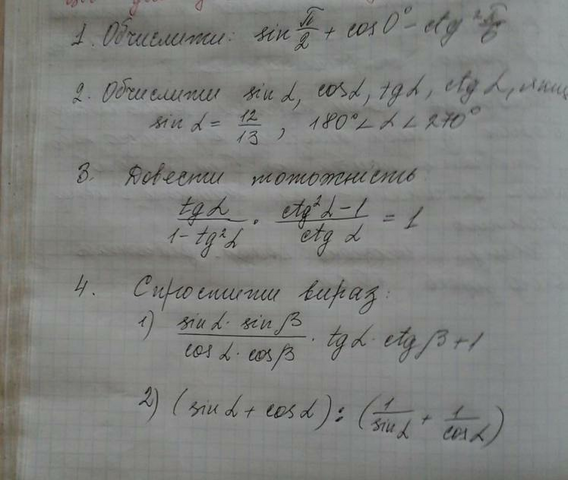 1. Обчислити: sin π/2 + cos 0° - ctg² π/6
2. Обчислити sin α, cos α, tg α, ctg α, якщо
sin α = 12/13, 180° < α < 270°
3. Довести тотожність
tg α / (1 - tg² α) · (ctg² α - 1) / ctg α = 1
4. Спростити вираз:
1) (sin α · sin β) / (cos α · cos β) · tg α · ctg β + 1
2) (sin α + cos α) : (1/sin α + 1/cos α)